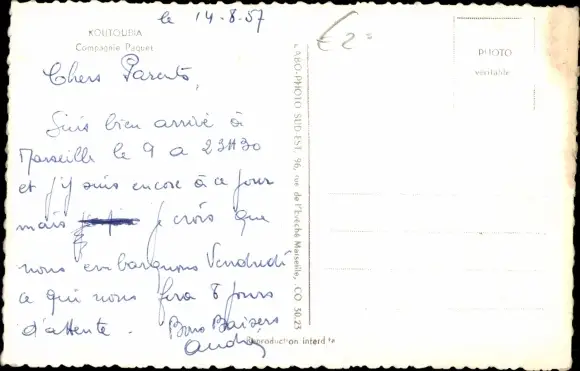 le 14-8-57
KOUTOUBIA
Compagnie Paquet
Chers Parents,
Suis bien arrivé à
Marseille le 9 a 23H30
et j'y suis encore à ce jour
mais je crois que
nous embarquons Vendredi
ce qui nous fera 8 jours
d'attente. Bons Baisers
André
LABO-PHOTO SUD-EST. 96, rue de l'Evêché Marseille, .CO 50.23
Reproduction interdite
€ 2=
PHOTO
véritable